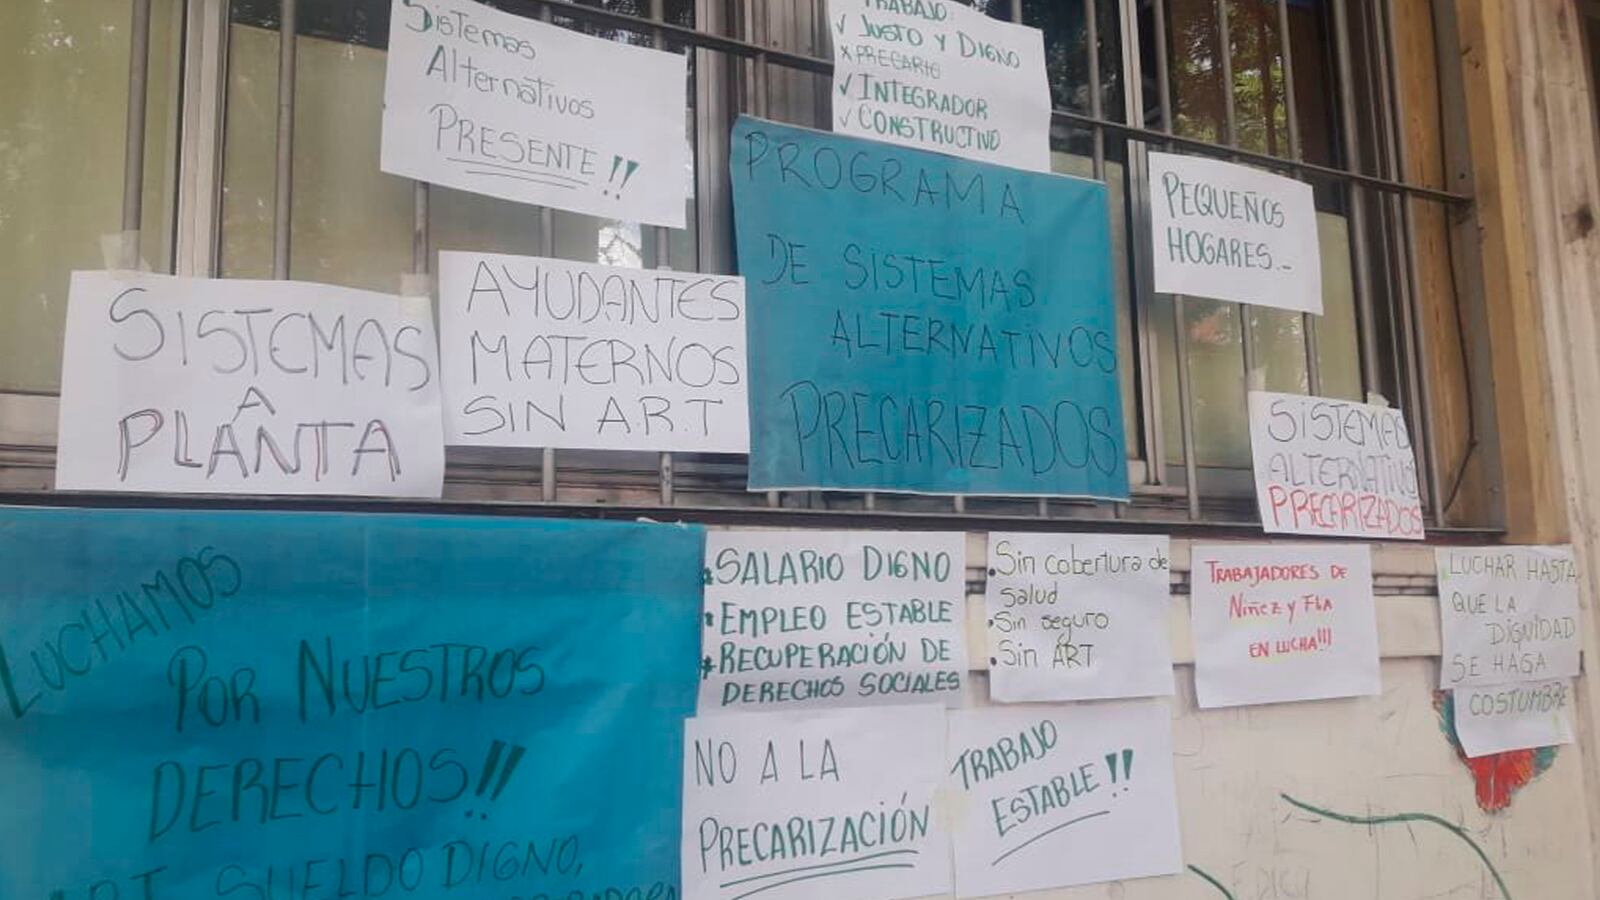 Sistemas
Alternativos
PRESENTE!!
TRABAJO:
✓ JUSTO Y DIGNO
x PRECARIO
✓ INTEGRADOR
✓ CONSTRUCTIVO
PROGRAMA
DE SISTEMAS
ALTERNATIVOS
PRECARIZADOS
PEQUEÑOS
HOGARES.-
SISTEMAS
A
PLANTA
AYUDANTES
MATERNOS
SIN A.R.T
SISTEMAS
ALTERNATIVO
PRECARIZADOS
LUCHAMOS
POR NUESTROS
DERECHOS!!
SUELDO DIGNO,
* SALARIO DIGNO
* EMPLEO ESTABLE
* RECUPERACIÓN DE
DERECHOS SOCIALES
• Sin cobertura de
Salud
• Sin seguro
• Sin ART
TRABAJADORES DE
Niñez y Flia
EN LUCHA!!!
LUCHAR HASTA
QUE LA
DIGNIDAD
SE HAGA
COSTUMBRE
NO A LA
PRECARIZACIÓN
TRABAJO
ESTABLE!!